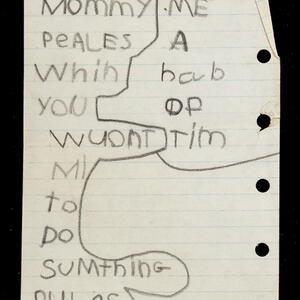 MoMMy
PeALES
Whih
YOU
WUONT
MI
to
DO
SUMthing
ME
A
hab
OF
TiM